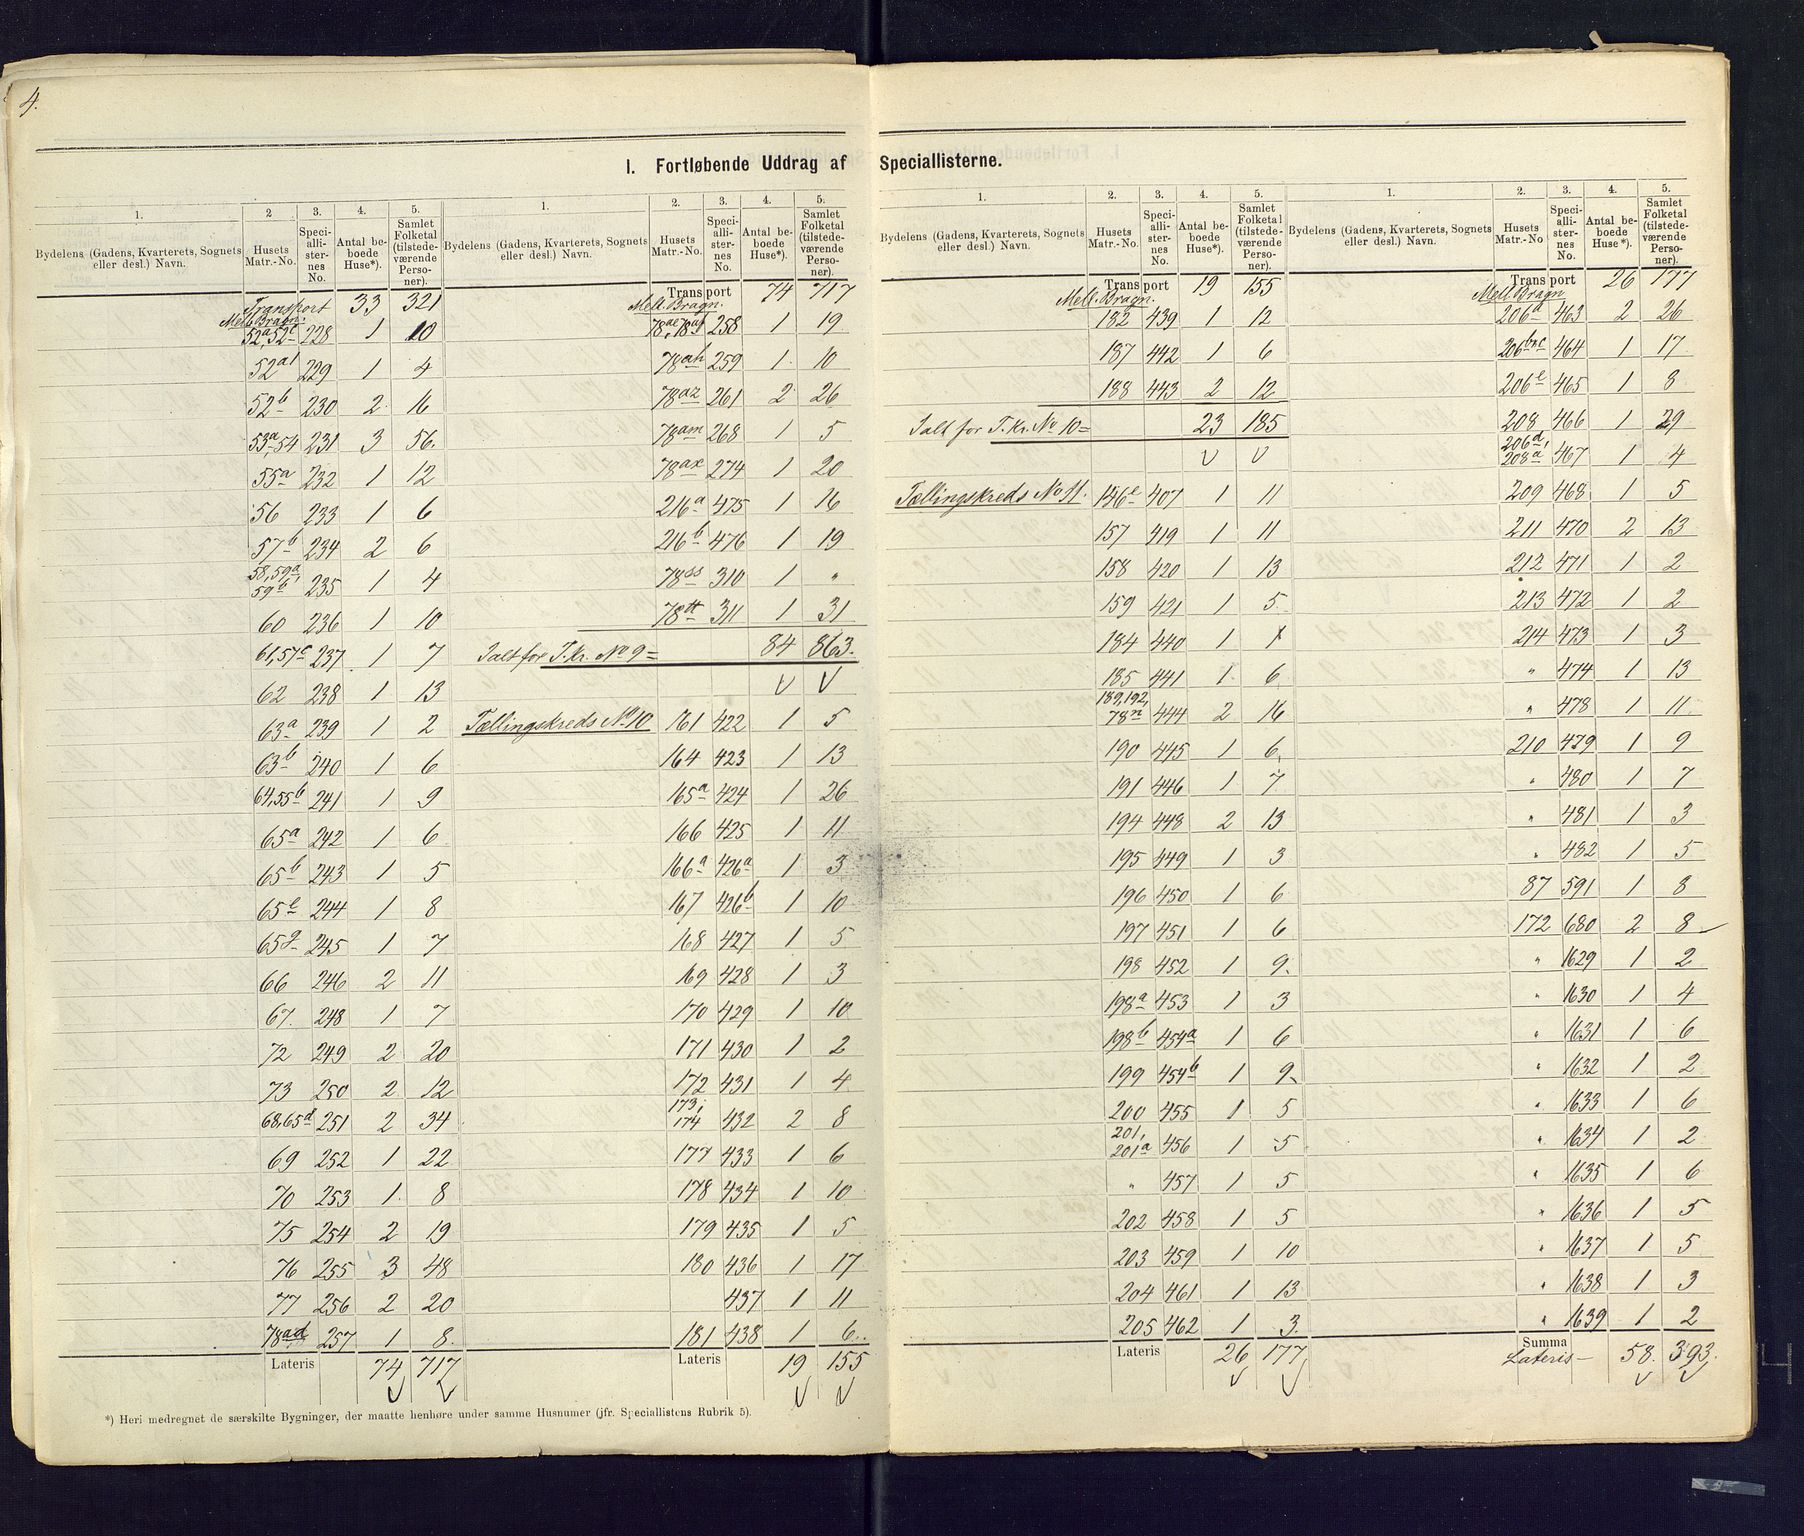 4.
I. Fortløbende Uddrag af Speciallisterne.
1. 2 3. 4. 5.
Bydelens (Gadens, Kvarterets, Sognets eller desl.) Navn. Husets Matr.-No. Specialli-sternes No. Antal beboede Huse*). Samlet Folketal (tilstedeværende Personer).
Transport 33 321
Mell. Bragn.
52a, 52c 228 1 10
52a1 229 1 4
52b 230 2 16
53a, 54 231 3 56.
55a 232 1 12
56 233 1 6
57b 234 2 6
58, 59a,
59b 235 1 4
60 236 1 10
61, 57c 237 1 7
62 238 1 13
63a 239 1 2
63b 240 1 6
64, 55b 241 1 9
65a 242 1 6
65b 243 1 5
65e 244 1 8
65g 245 1 7
66 246 2 11
67. 248 1 7
72 249 2 20
73 250 2 12
68, 65d 251 2 34
69 252 1 22
70 253 1 8
75 254 2 19
76 255 3 48
77 256 2 20
78ad 257 1 8.
Lateris 74 717
1. 2. 3. 4. 5.
Bydelens (Gadens, Kvarterets, Sognets eller desl.) Navn. Husets Matr.-No. Specialli-sternes No. Antal beboede Huse*). Samlet Folketal (tilstedeværende Personer).
Transport 74 717
Mell. Bragn.
258 1 19
78ah 259 1 10
78az 261 2 26
78am 268 1 5
78ax 274 1 20
216a 475 1 16
216b 476 1 19
78ss 310 1 "
78tt 311 1 31
Ialt for T.kr. No 9 = 84 863.
Tællingskreds No 10 161 422 1 5
164 423 1 13
165a 424 1 26
166 425 1 11
166a 426a 1 3
167 426b 1 10
168 427 1 5
169 428 1 3
170 429 1 10
171 430 1 2
172 431 1 4
173,
174 432 2 8
177 433 1 6
178 434 1 10
179 435 1 5
180 436 1 17
437 1 11
181 438 1 6.
Lateris 19 155
*) Heri medregnet de særskilte Bygninger, der maatte henhøre under samme Husnumer (jfr. Speciallistens Rubrik 5).
1. 2. 3. 4. 5.
Bydelens (Gadens, Kvarterets, Sognets eller desl.) Navn. Husets Matr.-No. Specialli-sternes No. Antal beboede Huse*). Samlet Folketal (tilstedeværende Personer).
Transport 19 155
Mell. Bragn.
182 439 1 12
187 442 1 6
188 443 2 12
Ialt for T.kr. No 10 = 23 185
Tællingskreds No 11. 156e 407 1 11
157 419 1 11
158 420 1 13
159 421 1 5
184 440 1 1
185 441 1 6
189, 192,
78n 444 2 16
190 445 1 6
191 446 1 7
194 448 2 13
195 449 1 3
196 450 1 6
197 451 1 6
198 452 1 9
198a 453 1 3
198b 454a 1 6
199 454b 1 9
200 455 1 5
201,
201a 456 1 5
" 457 1 5
202 458 1 5
203 459 1 10
204 461 1 13
205 462 1 3.
Lateris 26 177
1. 2. 3. 4. 5.
Bydelens (Gadens, Kvarterets, Sognets eller desl.) Navn. Husets Matr.-No. Specialli-sternes No. Antal beboede Huse*). Samlet Folketal (tilstedeværende Personer).
Transport 26 177
Mell Bragn
206a 463 2 26
464 1 17
206e 465 1 8
208 466 1 29
206d,
208a 467 1 4
209 468 1 5
211 470 2 13
212 471 1 2
213 472 1 2
214 473 1 3
" 474 1 13
" 478 1 11
210 479 1 9
" 480 1 7
" 481 1 3
" 482 1 5
87 591 1 8
172 680 2 8
" 1629 1 2
" 1630 1 4
" 1631 1 6
" 1632 1 2
" 1633 1 6
" 1634 1 2
" 1635 1 6
" 1636 1 5
" 1637 1 5
" 1638 1 3
" 1639 1 2
Summa
Lateris 58. 393.